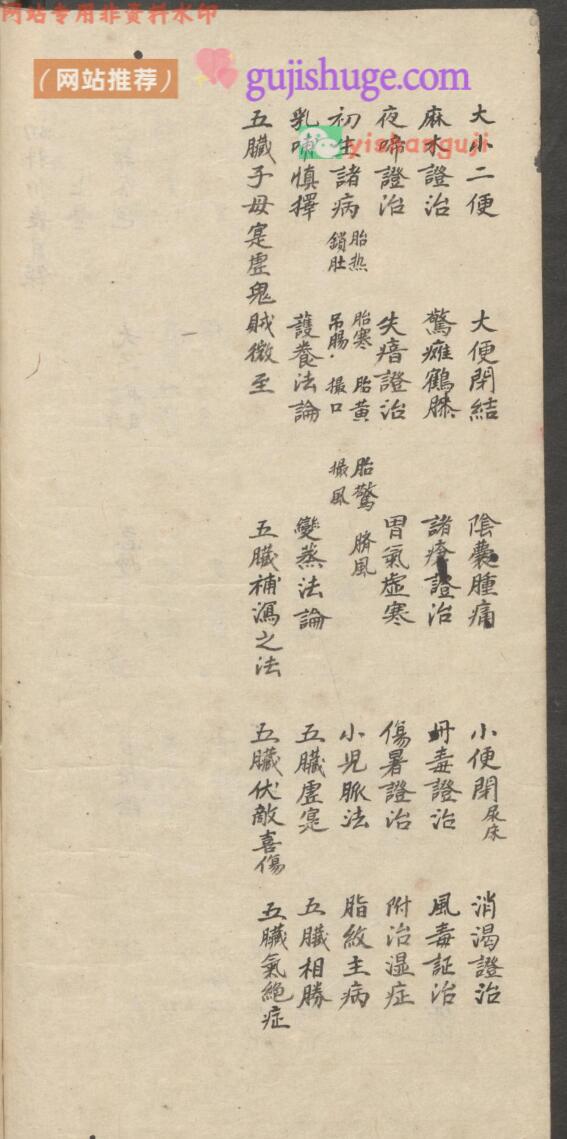 网站专用非资料水印
（网站推荐） gujishuge.com
yishanguji
大小二便 大便閉結 陰囊腫痛 小便閉 尿床 消渴證治
麻木證治 驚癱鶴膝 諸瘡證治 丹毒證治 風毒証治
夜啼證治 失瘖證治 胃氣虛寒 傷暑證治 附治湿症
初生諸病 胎热 鎖肚 胎寒 胎黃 吊腸 撮口 胎驚 臍風 撮風 小児脈法 脂紋主病
乳哺慎擇 護養法論 變蒸法論 五臟虛寔 五臟相勝
五臟子母寔虛鬼賊微至 五臟補瀉之法 五臟伏敵喜傷 五臟氣絕症